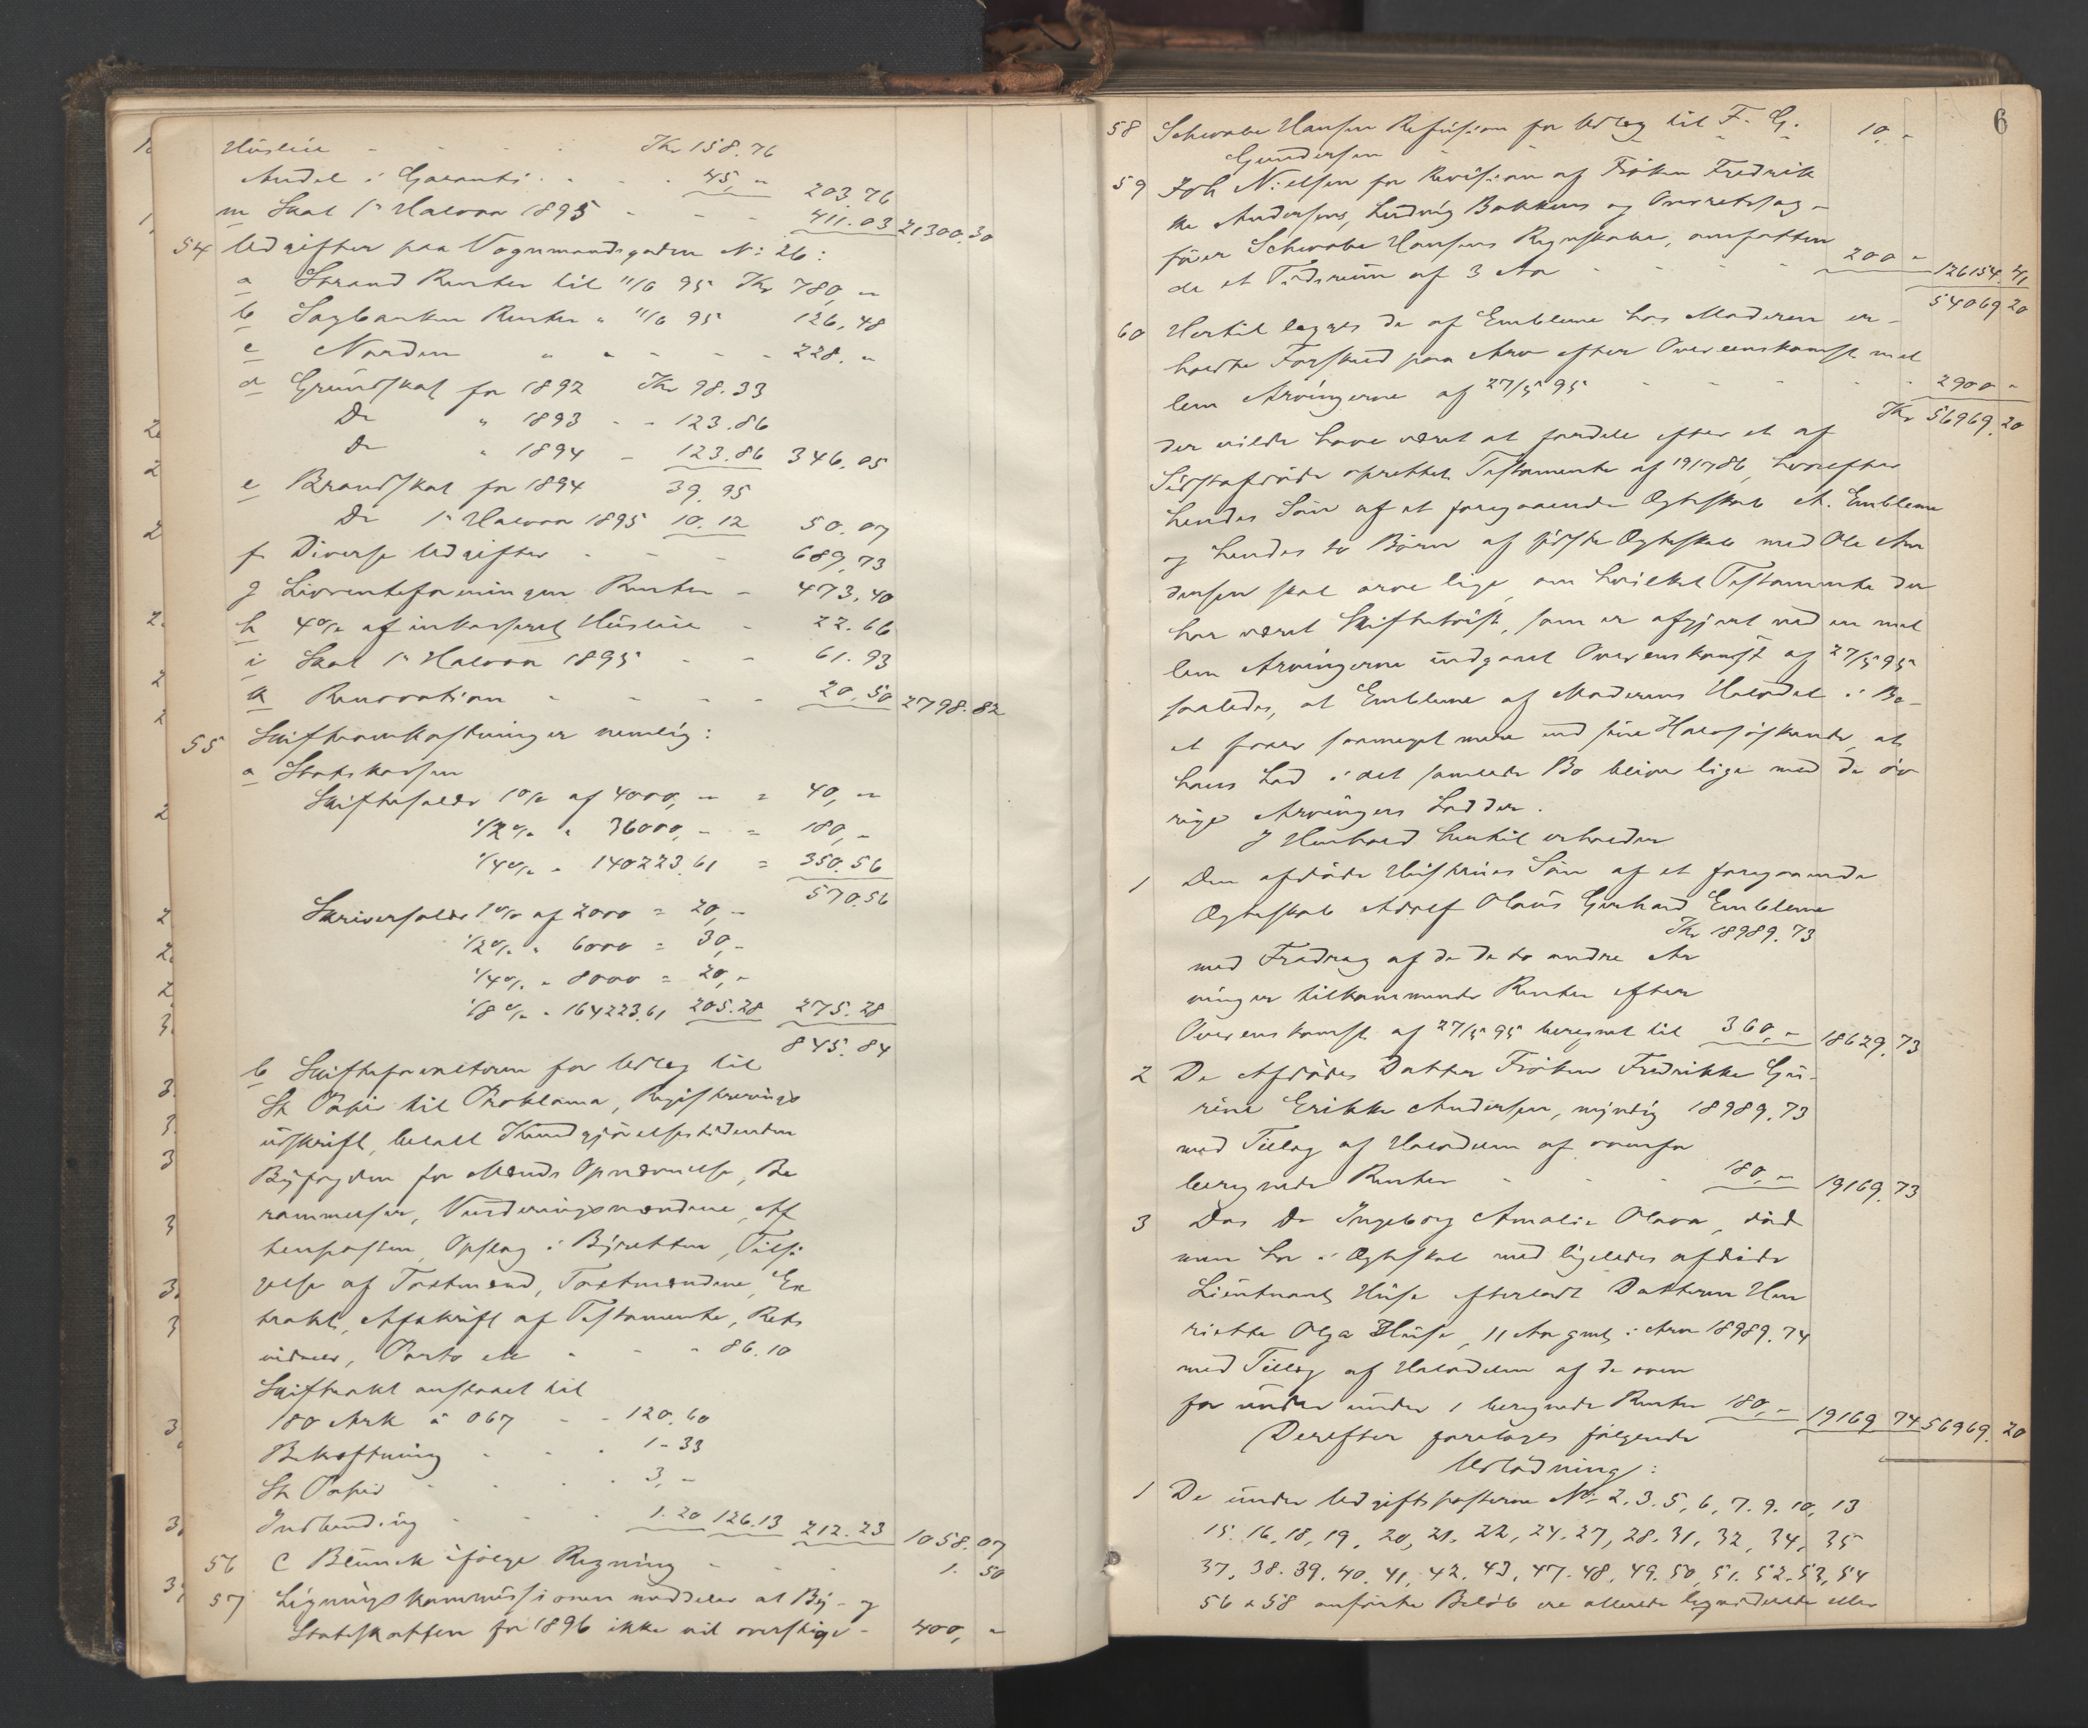 Husleie - - - - Kr 158.76
Andel i Garanti - - - 45,- 203.76
m Skat 1ste Halvaar 1895 - - - 411.03 21300.30
54 Udgifter paa Vognmandsgaden N: 26:
a Strand Renter til 11/6 95 Kr 780,-
b Sagbanken Renter " 11/6 95 126,48
c Norden " " - - - 228.-
d Grundskat for 1892 Kr 98.33
Do " 1893 - - 123.86
Do " 1894 - 123.86 346.05
e Brandskat for 1894 39.95
Do 1ste Halvaar 1895 10.12 50.07
f Diverse Udgifter - - - 689.73
g Livrenteforeningen Renter - 473,40
h 4% af inkasseret Husleie - 22.66
i Skat 1ste Halvaar 1895 - - 61.93
k Renovation - - - - 20.50 2798.82
55 Skifteomkostninger nemlig:
a Statskassen
Skiftesalær 1% af 4000,- = 40,-
1/2% " 36000,- = 180,-
1/4% " 140223.61 = 350.56
570.56
Skriversalær 1% af 2000 = 20,-
1/2% " 6000 = 30,-
1/4% " 8000 = 20,-
1/8% " 164223.61 205.28 275.28
845.84
b Skifteforvalteren for Udlæg til
St Papir til Proklama, Registrerings
udskrift, betalt Kundgjørelsestidenden
Byfogden for Mænds Opnævnelse, Be
rammelser, Vurderingsmændene, Af
tenposten, Opslag i Byretten, Tilsi
gelse af Taxtmænd, Taxtmændene, Ex
trakt, Afskrift af Testamente, Rets
vidner, Porto etc - - - 86.10
Skifteakt anslaaet til
180 Ark à 067 - - 120.60
Bekræftning - - - 1-33
St Papir - - - - 3,-
Indbinding - - - 1.20 126.13 212.23 1058.07
56 C Blunck ifølge Regning - - - 1. 50
57 Ligningskommissionen meddeler at By- og
Statsskatten for 1896 ikke vil overstige - 400,-
6
58 Schwabe Hansen Refusion for Udlæg til F. G. 10,-
Gundersen - - - -
59 Joh Nielsen for Revision af Frøken Fredrik
ke Andersens, Ludvig Bakkens og Overretssag-
fører Schwabe Hansens Regnskaber, omfatten
de et Tidsrum af 3 Aar - - - - 200 - 126154.41
54069 20
60 Hertil lægges de af Embleme hos Moderen er-
holdte Forskud paa Arv efter Overenskomst mel
lem Arvingerne af 27/5 95 - - - - 2900 -
Kr 56969.20
der vilde have været at fordele efter et af
Sidstafdøde oprettet Testamente af 19/7 86, hvorefter
hendes Søn af et foregaaende Ægteskab A. Embleme
og hendes to Børn af sidste Ægteskab med Ole An
dersen skal arve lige, om hvilket Testamente der
har været Skiftetvist, som er afgjort ved en mel
lem Arvingerne indgaaet Overenskomst af 27/5 95
saaledes, at Embleme af Moderens Halvdel i Bo-
et faaer saameget mere end sine Halvsøskende, at
hans Lod i det samlede Bo bliver lige med de øv
rige Arvingers Lodder.
I Henhold hertil erholder
1 Den afdøde Hustrues Søn af et foregaaende
Ægteskab Adolf Olaus Gerhard Embleme
Kr 18989.73
med Fradrag af de de to andre Ar
vinger tilkommende Renter efter
Overenskomst af 27/5 95 beregnet til 360,- 18629.73
2 De Afdødes Datter Frøken Fredrikke Gu-
rine Erikke Andersen, myndig 18989.73
med Tillæg af Halvdelen af ovenfor
beregnede Renter - - - 180,- 19169.73
3 Das Do Ingeborg Amalie Olava, død
men har i Ægteskab med ligeledes afdøde
Lieutnant Huse efterladt Datteren Hen
riette Olga Huse, 11 Aar gml, i Arv 18989.74
med Tillæg af Halvdelen af de oven
for under under 1 beregnede Renter 180,- 19169 74 56969.20
Derefter foretages følgende
Udlodning:
1 De under Udgiftsposterne No 2.3.5,6,7.9.10,13
15.16.18,19. 20,21. 22,24.27, 28.31, 32, 34, 35
37. 38.39.40.41, 42.43, 47.48, 49.50, 51. 52.53,54
56 & 58 anførte Beløb ere allerede liqviderede eller